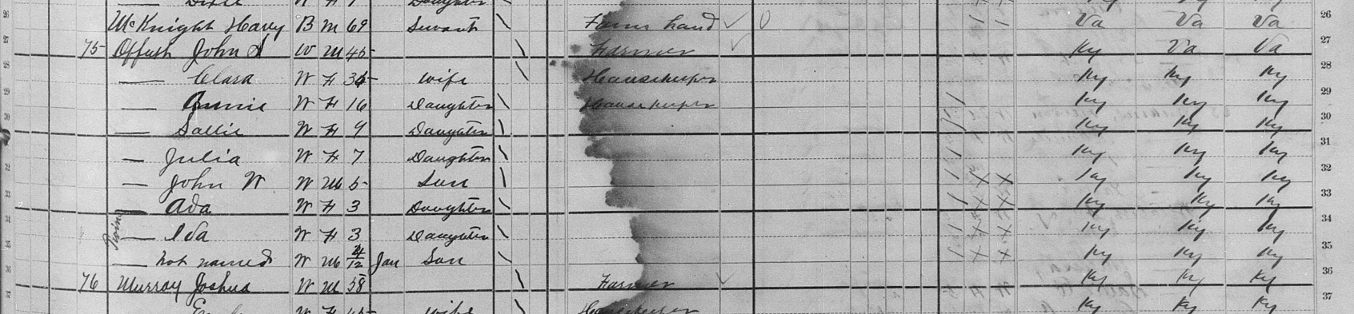 Daughter
McKnight Harry B M 69 Servant Farm hand Va Va Va 26
75 Offutt John W M 45 Farmer Ky Va Va 27
— Clara W F 35 Wife Housekeeper Ky Ky Ky 28
— Annie W F 16 Daughter Housekeeper Ky Ky Ky 29
— Sallie W F 9 Daughter Ky Ky Ky 30
— Julia W F 7 Daughter Ky Ky Ky 31
— John W W M 5 Son Ky Ky Ky 32
— Ada W F 3 Daughter Ky Ky Ky 33
— Iva W F 3 Daughter Ky Ky Ky 34
— not named W M 4/12 Jan Son Ky Ky Ky 35
76 Murray Joshua W M 58 Farmer Ky Ky Ky 36
W F 45 Wife Housekeeper Ky Ky Ky 37